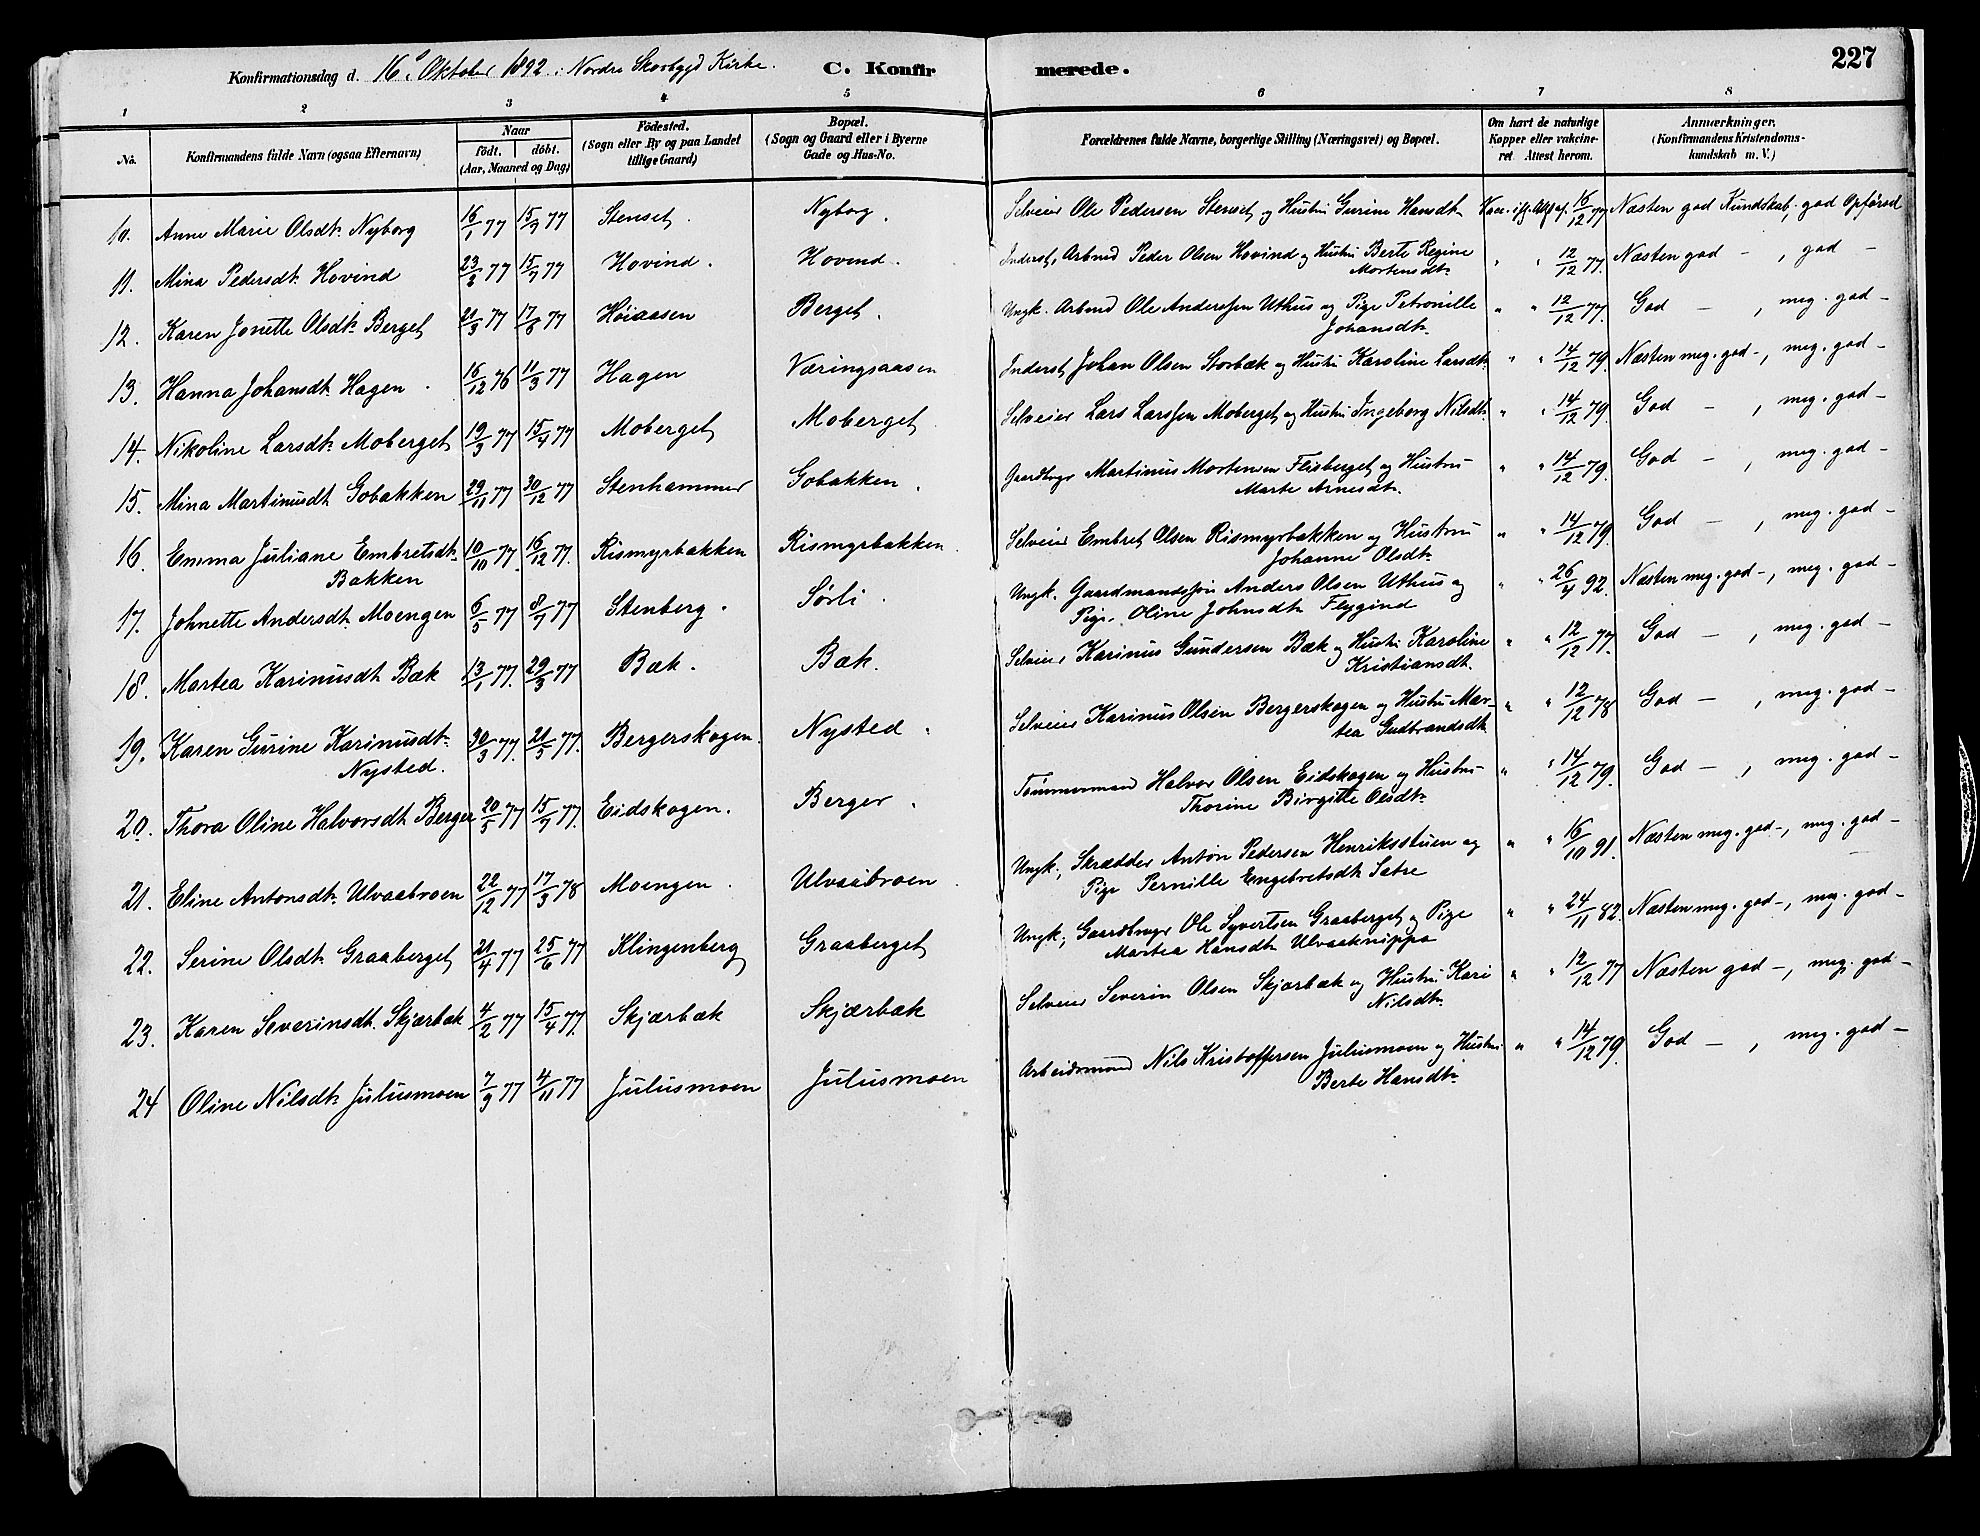 Konfirmationsdag d. 16de Oktober 1892 i Nordre Skovbygd Kirke. C. Konfirmerede. 227
1 2 3 4 5 6 7 8
No. Konfirmandens fulde Navn (ogsaa Efternavn) Naar födt. döbt. (Aar, Maaned og Dag) Födested. (Sogn eller By og paa Landet tillige Gaard) Bopæl. (Sogn og Gaard eller i Byerne Gade og Hus-No. Forældrenes fulde Navne, borgerlige Stilling (Næringsvei) og Bopæl. Om havt de naturlige Kopper eller vakcineret Attest herom. Anmærkninger. (Konfirmandens Kristendomskundskab m. V.)
10. Anne Marie Olsdtr. Nyborg 16/1 77 15/7 77 Stenset. Nyborg. Selveier Ole Pedersen Stenset og Hustru Gurine Hansdtr. Vacc. ifg. Att. af 16/12 77 Næsten god Kundskab, god Opförsel
11. Mina Pedersdtr. Hovind 23/2 77 15/7 77 Hovind. Hovind. Inderst, Arbmd Peder Olsen Hovind og Hustru Berte Regine Mortensdtr. " " 12/12 77. Næsten god — , god —
12. Karen Jonette Olsdtr. Berget 21/3 77 17/6 77 Höiaasen Berget. Ungk. Arbmd Ole Anderssen Uthus og Pige Petronille Johansdtr. " " 12/12 77. God — , meg. god —
13. Hanna Johansdtr. Hagen. 16/12 76 11/3 77 Hagen Væringsaasen Inderst, Johan Olsen Storbæk og Hustru Karoline Larsdtr. " " 14/12 79. Næsten meg. god —, meg. god —
14. Nikoline Larsdtr. Moberget 19/3 77 15/4 77 Moberget Moberget Selveier Lars Larssen Moberget og Hustru Ingeborg Nilsdtr. " " 14/12 79. God — , meg. god —
15. Mina Martinusdtr Gobakken 29/11 77 30/12 77 Stenhammer Gobakken. Gaardbrugr Martinus Mortensen Flisberget og Hustru Marte Arnesdtr. " " 14/12 79. God — , meg. god —
16. Emma Juliane Embretsdtr. Bakken 10/10 77. 16/12 77. Rismyrbakken Rismyrbakken. Selveier Embret Olsen Rismyrbakken og Hustru Johanne Olsdtr. " " 14/12 79. God — , meg. god —
17. Johnette Andersdtr. Moengen 6/5 77 8/7 77 Stenberg. Sörli. Ungk. Gaardmandssön Anders Olsen Uthus og Pige. Oline Johnsdtr Flygind " " 26/4 92. Næsten meg. god —, meg. god —
18. Martea Karinusdtr Bæk 13/1 77. 29/3 77 Bæk. Bæk. Selveier Karinus Gundersen Bæk og Hustru Karoline Kristiansdtr. " " 12/12 77. God — , meg. god —
19. Karen Gurine Karinusdtr. Nysted. 30/3 77. 21/5 77. Bergerskogen. Nysted. Selveier Karinus Olsen Bergerskogen og Hustru Martea Gudbrandsdtr " " 12/12 78 God — , meg. god —
20. Thora Oline Halvorsdtr Berger 20/5 77 15/7 77. Eidskogen. Berger. Tömmermand Halvor Olsen Eidskogen og Hustru Thorine Birgitte Olsdtr. " " 14/12 79. God — , meg. god —
21. Eline Antonsdtr. Ulvaabroen 22/12 77 17/3 78 Moengen. Ulvaabroen. Ungk., Skrædder Anton Pedersen Henriksstuen og Pige Pernille Engebretsdtr Satre " " 16/10 91. Næsten meg. god —, meg. god —
22. Serine Olsdtr. Graaberget 21/4 77 25/6 77 Klingenberg Graaberget Ungk., Gaardbrugr Ole Syvertsen Graaberget og Pige Martea Hansdtr Ulvaaknippa " " 24/11 82. Næsten meg. god —, meg. god —
23. Karen Severinsdtr. Skjærbæk 4/2 77 15/4 77. Skjærbæk Skjærbæk Selveier Severin Olsen Skjærbæk og Hustru Kari Nilsdtr. " " 12/12 77 Næsten god —, meg. god —
24 Oline Nilsdtr. Juliusmoen 7/9 77 4/11 77 Juliusmoen Juliusmoen Arbeidsmand Nils Kristoffersen Juliusmoen og Hustru Berte Hansdtr. " " 14/12 79. God — , meg. god —